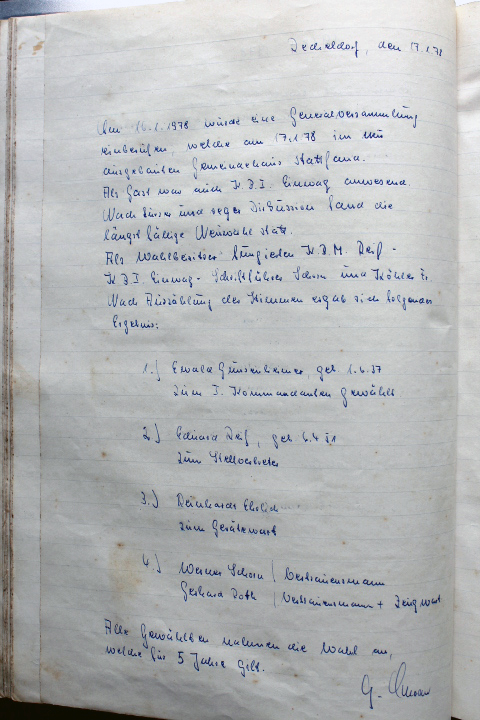 den 17.1.78
Am 16.1.1978 wurde eine Generalversammlung
einberufen, welche am 17.1.78 im neu
ausgebauten Gemeindehaus stattfand.
Als Gast war auch K.B.I. Einwag anwesend.
Nach kurzer und reger Diskussion fand die
längst fällige Neuwahl statt.
Als Wahlbeisitzer fungierten K.B.M. Reif -
K.B.I. Einwag - Schriftführer Schorn und Köhler
Nach Auszählung der Stimmen ergab sich folgendes
Ergebnis:
1.) Ewald geb. 1.6.37
zum I. Kommandanten gewählt
2.) Eduard Reif, geb. 6.4.51
zum Stellvertreter
3.) Reinhardt Ehrlich
zum Gerätewart
4.) Werner Schorn / Vertrauensmann
Gerhard Roth / Vertrauensmann + Zeugwart
Alle Gewählten nahmen die Wahl an,
welche für 5 Jahre gilt.